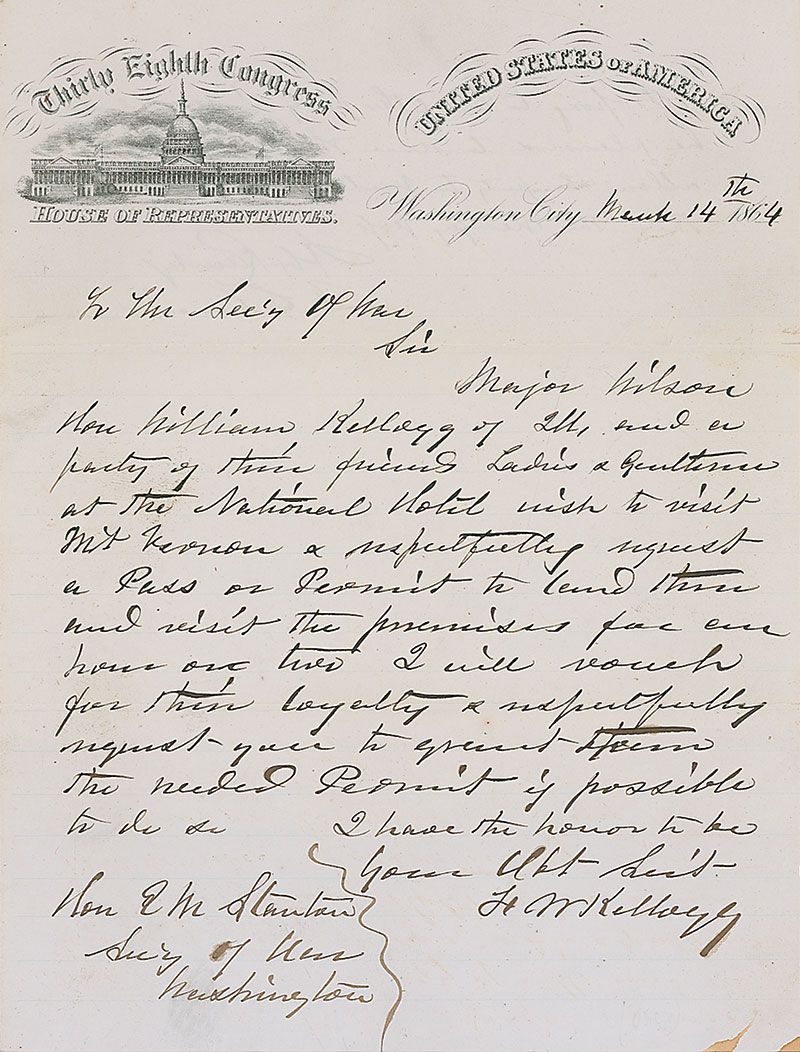 Thirty Eighth Congress
UNITED STATES OF AMERICA
HOUSE OF REPRESENTATIVES.
Washington City March 14th 1864
To the Sec'y of War
Sir
Major Wilson
Hon William Kellogg of Ill, and a
party of their friends Ladies & Gentlemen
at the National Hotel wish to visit
Mt Vernon & respectfully request
a Pass or Permit to land there
and visit the premises for an
hour or two I will vouch
for their loyalty & respectfully
request you to grant them
the needed Permit if possible
to do so I have the honor to be
Your Obt Sev't
Hon E M Stanton F W Kellogg
Sec'y of War
Washington